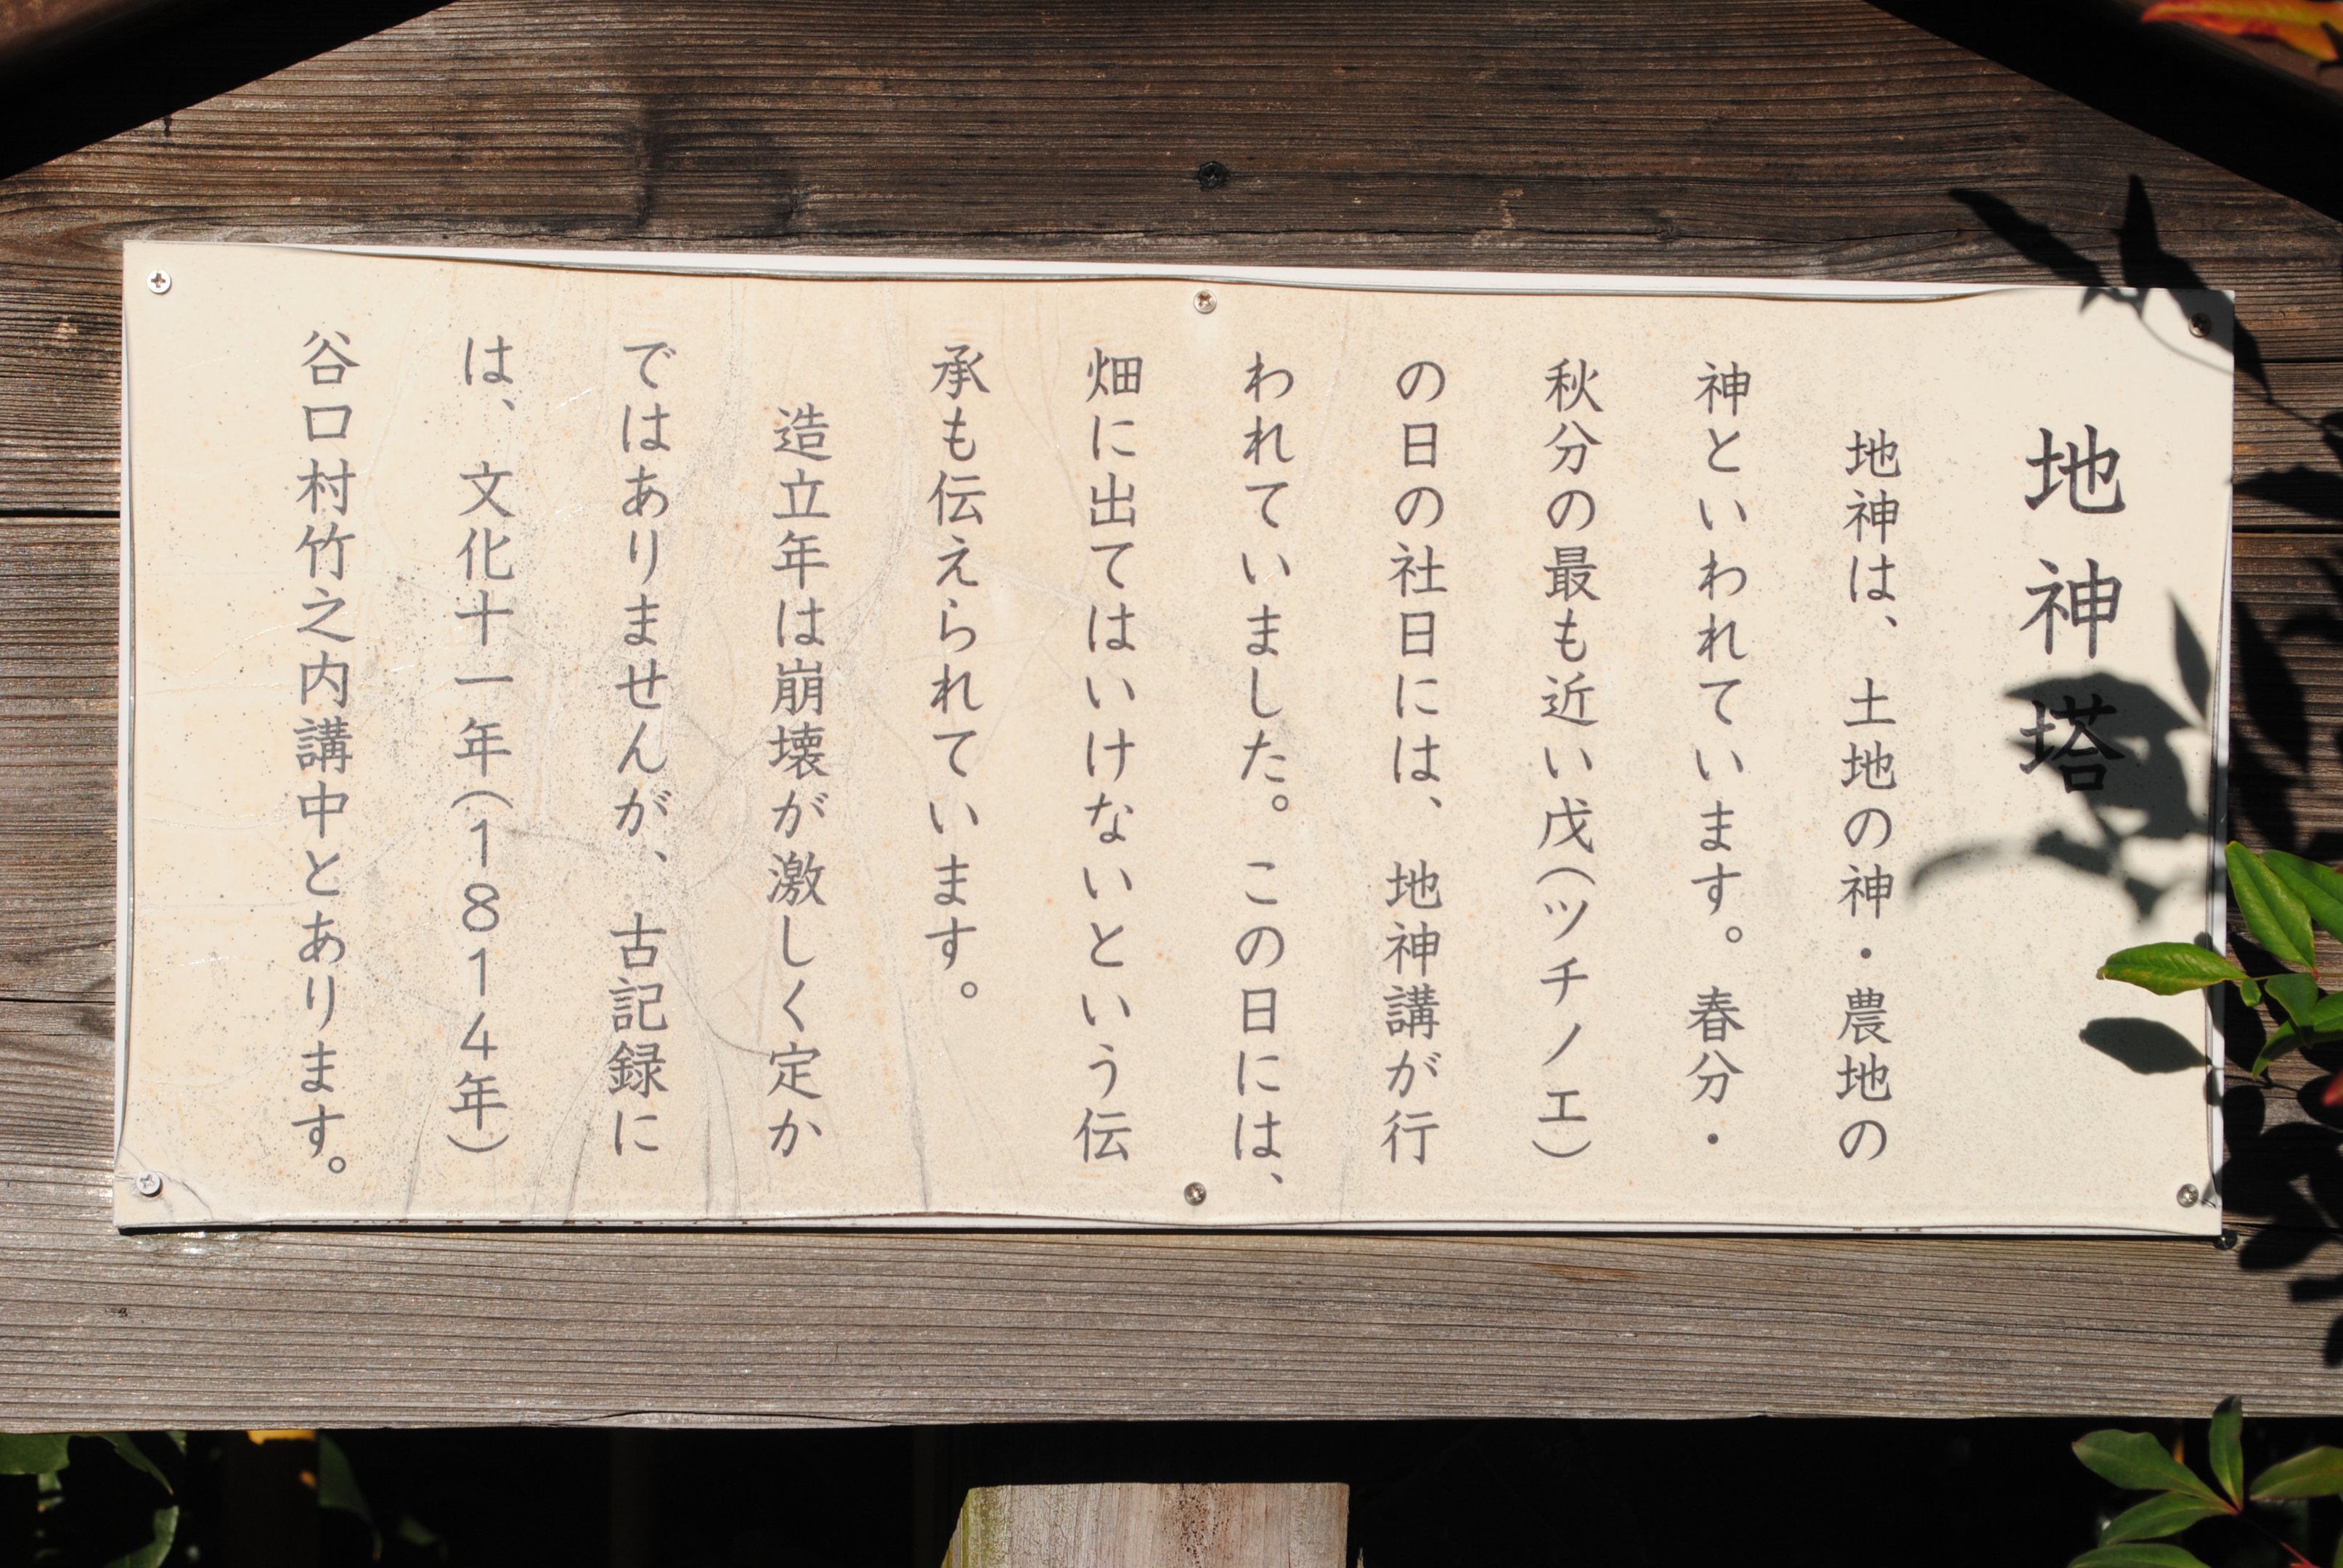 地神塔
地神は、土地の神・農地の
神といわれています。春分・
秋分の最も近い戊(ツチノエ)
の日の社日には、地神講が行
われていました。この日には、
畑に出てはいけないという伝
承も伝えられています。
造立年は崩壊が激しく定か
ではありませんが、古記録に
は、文化十一年(1814年)
谷口村竹之内講中とあります。